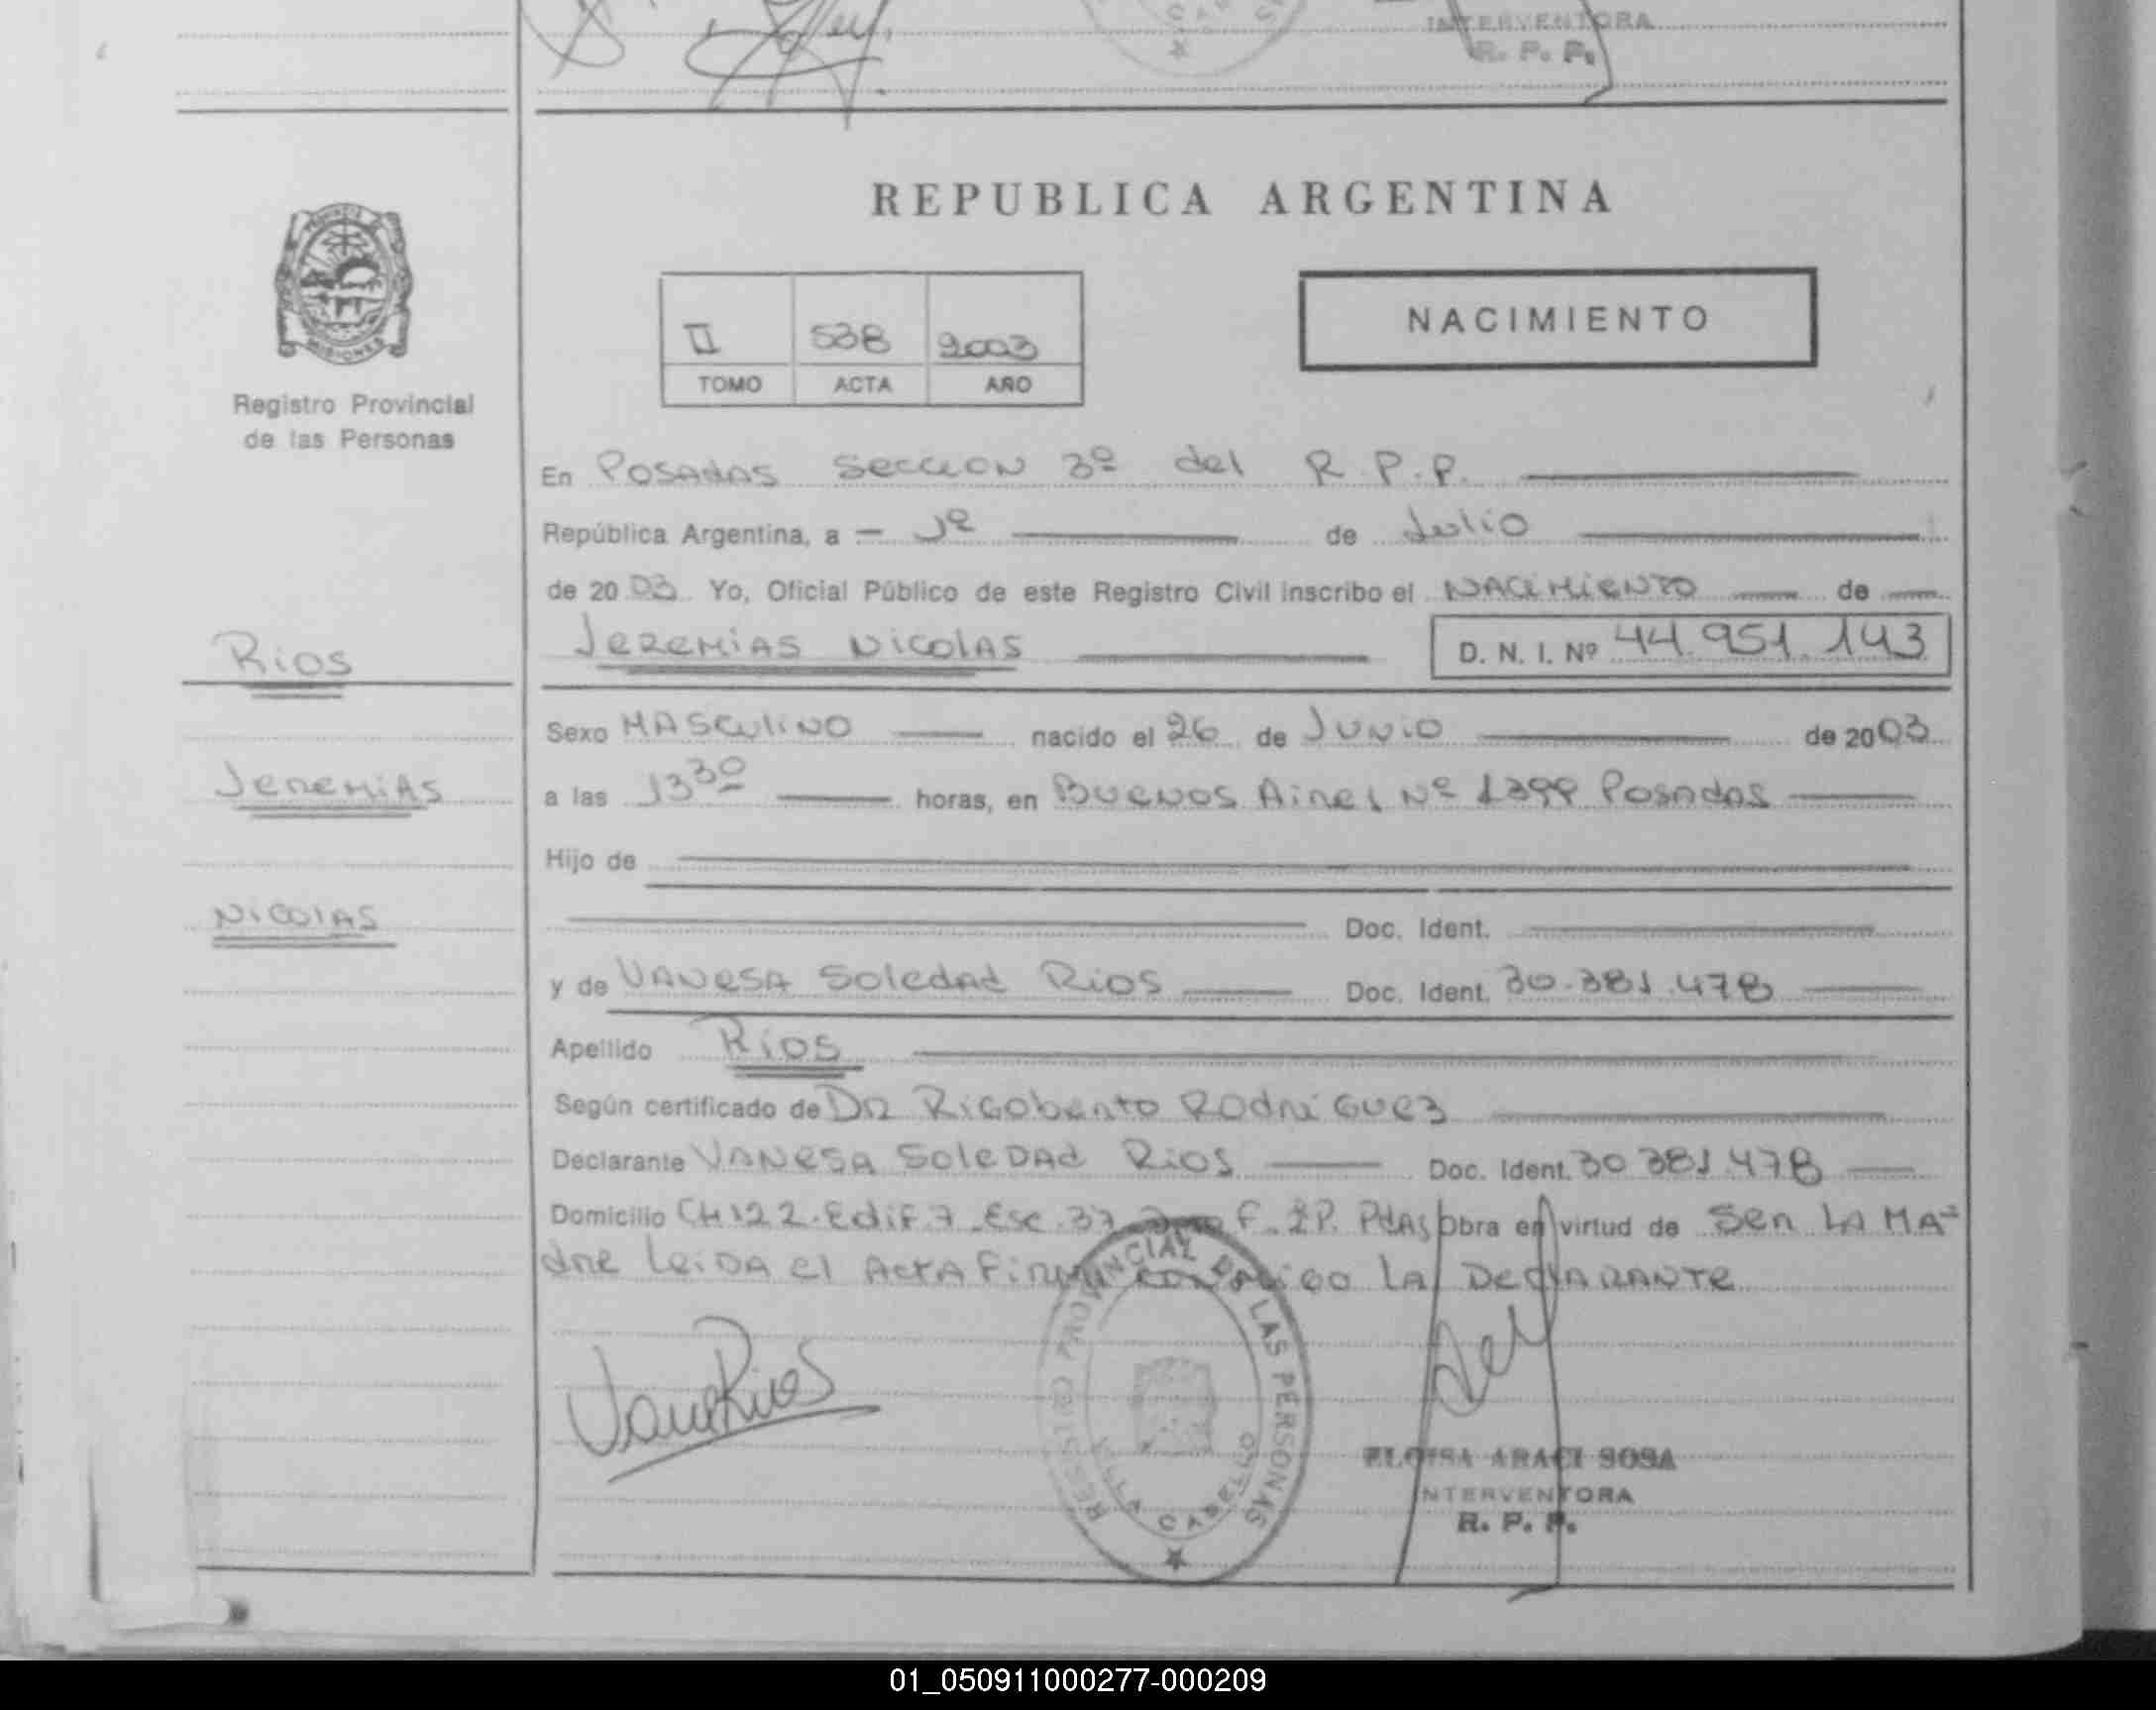 INTERVENTORA
R. P. P.
REPUBLICA ARGENTINA
MISIONES
Registro Provincial
de las Personas
II 538 2003
TOMO ACTA AÑO
NACIMIENTO
En POSADAS SECCION 3º del R.P.P.
República Argentina, a 1º de Julio
de 2003 Yo, Oficial Público de este Registro Civil inscribo el NACIMIENTO de
Rios
JEREMIAS NICOLAS D. N. I. Nº 44.951.143
Sexo MASCULINO nacido el 26 de JUNIO de 2003
JEREMIAS
a las 13 30 horas, en BUENOS AIRES Nº 1399 POSADAS
Hijo de
NICOLAS
Doc. Ident.
y de VANESA Soledad Rios Doc. Ident. 30.381.478
Apellido Rios
Según certificado de DR RIGOBERTO RODRIGUEZ
Declarante VANESA SOLEDAD Rios Doc. Ident. 30 381 478
Domicilio CH 122 Edif 7 Esc. 37 F. 2P. Pdas obra en virtud de Ser LA MA-
dre Leida el Acta Firma conmigo LA DECLARANTE
Vane Rios
REGISTRO PROVINCIAL DE LAS PERSONAS
VILLA CABELLO
ELOISA ARACI SOSA
INTERVENTORA
R. P. P.
01_050911000277-000209